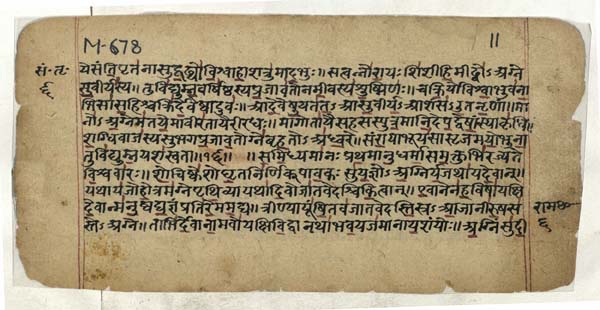 M-678
११
सं॰ तृ॰
६
ये संति पृतनासु दूढ्यो विश्वाहा शत्रुमादभुः ॥ स त्वं नो रायः शिशीहि मीढ्वो अग्ने
सुवीर्यस्य ॥ तुविद्युम्न वर्षिष्ठस्य प्रजावतोनमीवस्य शुष्मिणः ॥ चक्रिर्यो विश्वा भुवना
भि सासहिश्चक्रिर्देवेष्वा दुवः ॥ आ देवेषु यतत आ सुवीर्य आ शंस उत नृणां ॥ मा
नो अग्नेमतये मावीरतायै रीरधः ॥ मागोतायै सहसस्पुत्र मा निदेप द्वेषांस्या कृधि ॥
शग्धि वाजस्य सुभग प्रजावतोग्ने बृहतो अध्वरे ॥ सं राया भूयसा सृज मयोभुना
तुविद्युम्न यशस्वता ॥ १६ ॥ समिध्यमानः प्रथमानु धर्मा समक्तुभिरज्यते
विश्ववारः ॥ शोचिष्केशो घृतनिर्णिक्पावकः सुयज्ञो अग्निर्यजथाय देवान् ॥
यथायजो होत्रमग्ने पृथिव्या यथा दिवो जातवेदश्चिकित्वान् ॥ एवानेन हविषा यक्षि
देवान्मनुष्वद्यज्ञं प्र तिरेममद्य ॥ त्रीण्यायूंषि तव जातवेदस्तिस्र आजानीरुषस
स्ते अग्ने ॥ ताभिर्देवानामवो यक्षि विद्वानथा भव यजमानाय शं योः ॥ अग्निं सुदी
६